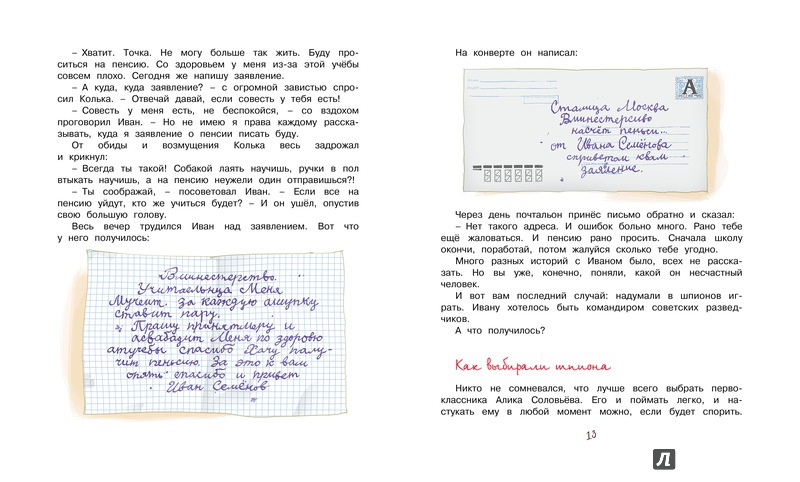 – Хватит. Точка. Не могу больше так жить. Буду про-
ситься на пенсию. Со здоровьем у меня из-за этой учёбы
совсем плохо. Сегодня же напишу заявление.
– А куда, куда заявление? – с огромной завистью спро-
сил Колька. – Отвечай давай, если совесть у тебя есть!
– Совесть у меня есть, не беспокойся, – со вздохом
проговорил Иван. – Но не имею я права каждому расска-
зывать, куда я заявление о пенсии писать буду.
От обиды и возмущения Колька весь задрожал
и крикнул:
– Всегда ты такой! Собакой лаять научишь, ручки в пол
втыкать научишь, а на пенсию неужели один отправишься?!
– Ты соображай, – посоветовал Иван. – Если все на
пенсию уйдут, кто же учиться будет? – И он ушёл, опустив
свою большую голову.
Весь вечер трудился Иван над заявлением. Вот что
у него получилось:
Вминестерство.
Учитаельнца Меня
Мучеит. за каждую ашупку
ставит пару.
Прашу принятмеру и
асвабадит Меня по здоровю
атучебы спасибо Хачу палу-
чит пеньсию. За это к вам
опять спасибо и привет
Иван Семёнов
На конверте он написал:
А
Сталица Москва
Вминестерсиво
насчёт пеньси...
от Ивана Семёнова
сприветом квам
заявление.
Через день почтальон принёс письмо обратно и сказал:
– Нет такого адреса. И ошибок больно много. Рано тебе
ещё жаловаться. И пенсию рано просить. Сначала школу
окончи, поработай, потом жалуйся сколько тебе угодно.
Много разных историй с Иваном было, всех не расска-
зать. Но вы уже, конечно, поняли, какой он несчастный
человек.
И вот вам последний случай: надумали в шпионов иг-
рать. Ивану хотелось быть командиром советских развед-
чиков.
А что получилось?
Как выбирали шпиона
Никто не сомневался, что лучше всего выбрать перво-
классника Алика Соловьёва. Его и поймать легко, и на-
стукать ему в любой момент можно, если будет спорить.
13
Л